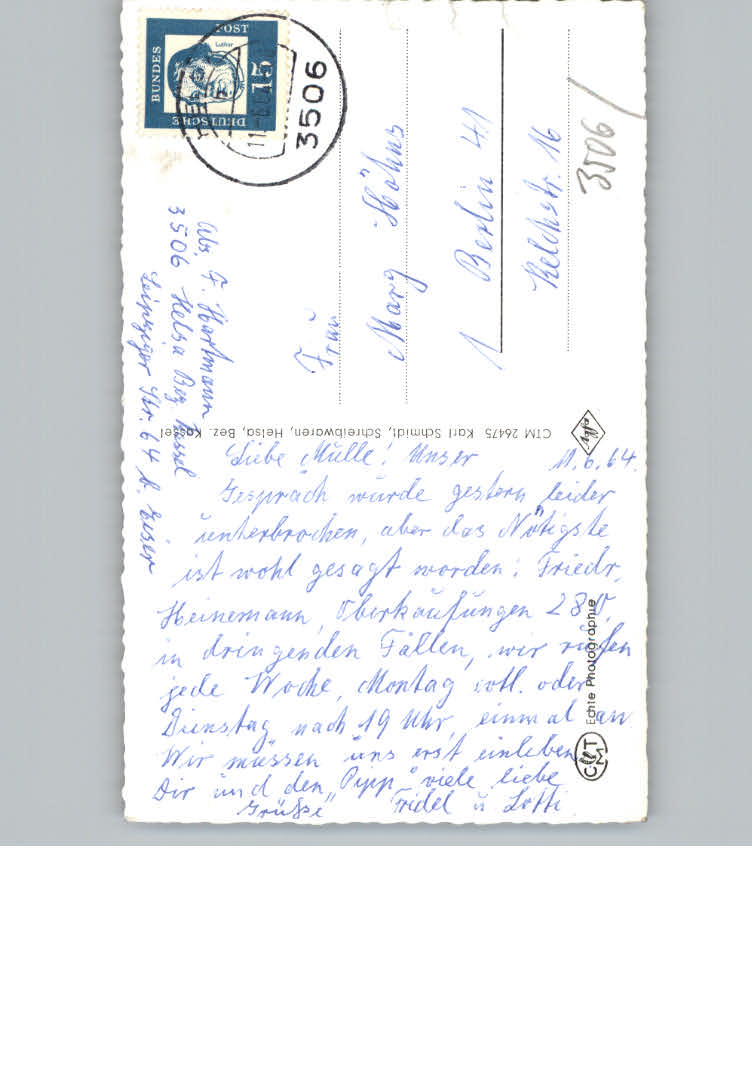 11.6.64.
Liebe Mulle! Unser
Gespräch wurde gestern leider
unterbrochen, aber das Nötigste
ist wohl gesagt worden: Friedr.
Heinemann, Oberkaufungen 280,
in dringenden Fällen, wir rufen
jede Woche, Montag evtl. oder
Dienstag nach 19 Uhr, einmal an.
Wir müssen uns erst einleben
Dir und den „Pipp“ viele liebe
Grüße Fridel u Lotti
Abs. F. Hartmann
3506 Helsa Bez. Kassel
Leipziger Str. 64 b.
Frau
Marg Höhns
1 Berlin 41
16
3506
DEUTSCHE
BUNDES
POST
Luther
15
3506
CTM 26475 Karl Schmidt, Schreibwaren, Helsa, Bez. Kassel
Agfa
Echte Photographie